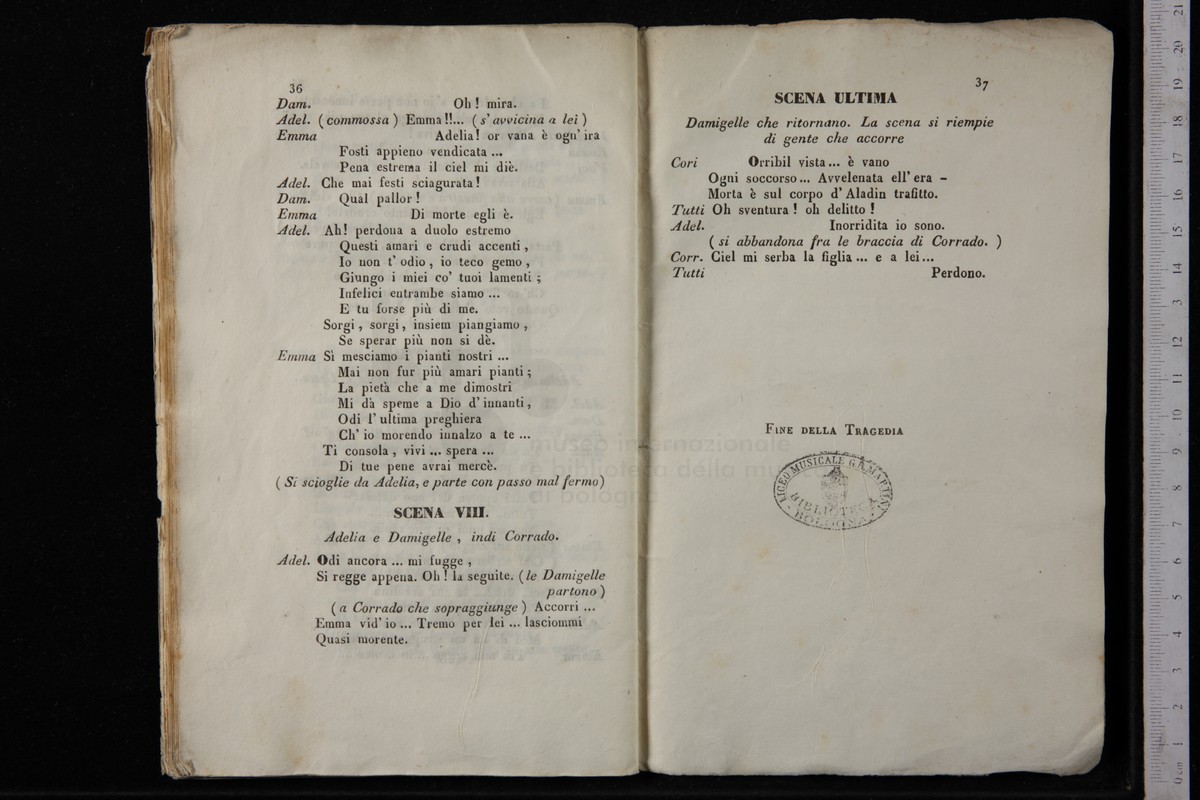 36
Dam. Oh ! mira.
Adel. ( commossa ) Emma !!... ( s' avvicina a lei )
Emma Adelia ! or vana è ogn' ira
Fosti appieno vendicata ...
Pena estrema il ciel mi diè.
Adel. Che mai festi sciagurata !
Dam. Qual pallor !
Emma Di morte egli è.
Adel. Ah! perdona a duolo estremo
Questi amari e crudi accenti ,
Io non t' odio , io teco gemo ,
Giungo i miei co' tuoi lamenti ;
Infelici entrambe siamo ...
E tu forse più di me.
Sorgi , sorgi , insiem piangiamo ,
Se sperar più non si dè.
Emma Sì mesciamo i pianti nostri ...
Mai non fur più amari pianti ;
La pietà che a me dimostri
Mi dà speme a Dio d' innanti ,
Odi l' ultima preghiera
Ch' io morendo innalzo a te ...
Ti consola , vivi ... spera ...
Di tue pene avrai mercè.
( Si scioglie da Adelia, e parte con passo mal fermo )
SCENA VIII.
Adelia e Damigelle , indi Corrado.
Adel. Odi ancora ... mi fugge ,
Si regge appena. Oh ! la seguite. ( le Damigelle
partono )
( a Corrado che sopraggiunge ) Accorri ...
Emma vid' io ... Tremo per lei ... lasciommi
Quasi morente.
37
SCENA ULTIMA
Damigelle che ritornano. La scena si riempie
di gente che accorre
Cori Orribil vista ... è vano
Ogni soccorso ... Avvelenata ell' era –
Morta è sul corpo d' Aladin trafitto.
Tutti Oh sventura ! oh delitto !
Adel. Inorridita io sono.
( si abbandona fra le braccia di Corrado. )
Corr. Ciel mi serba la figlia ... e a lei ...
Tutti Perdono.
FINE DELLA TRAGEDIA
LICEO MUSICALE G.B. MARTINI
BIBLIOTECA
BOLOGNA
museo internazionale
e biblioteca della mu
di bologna